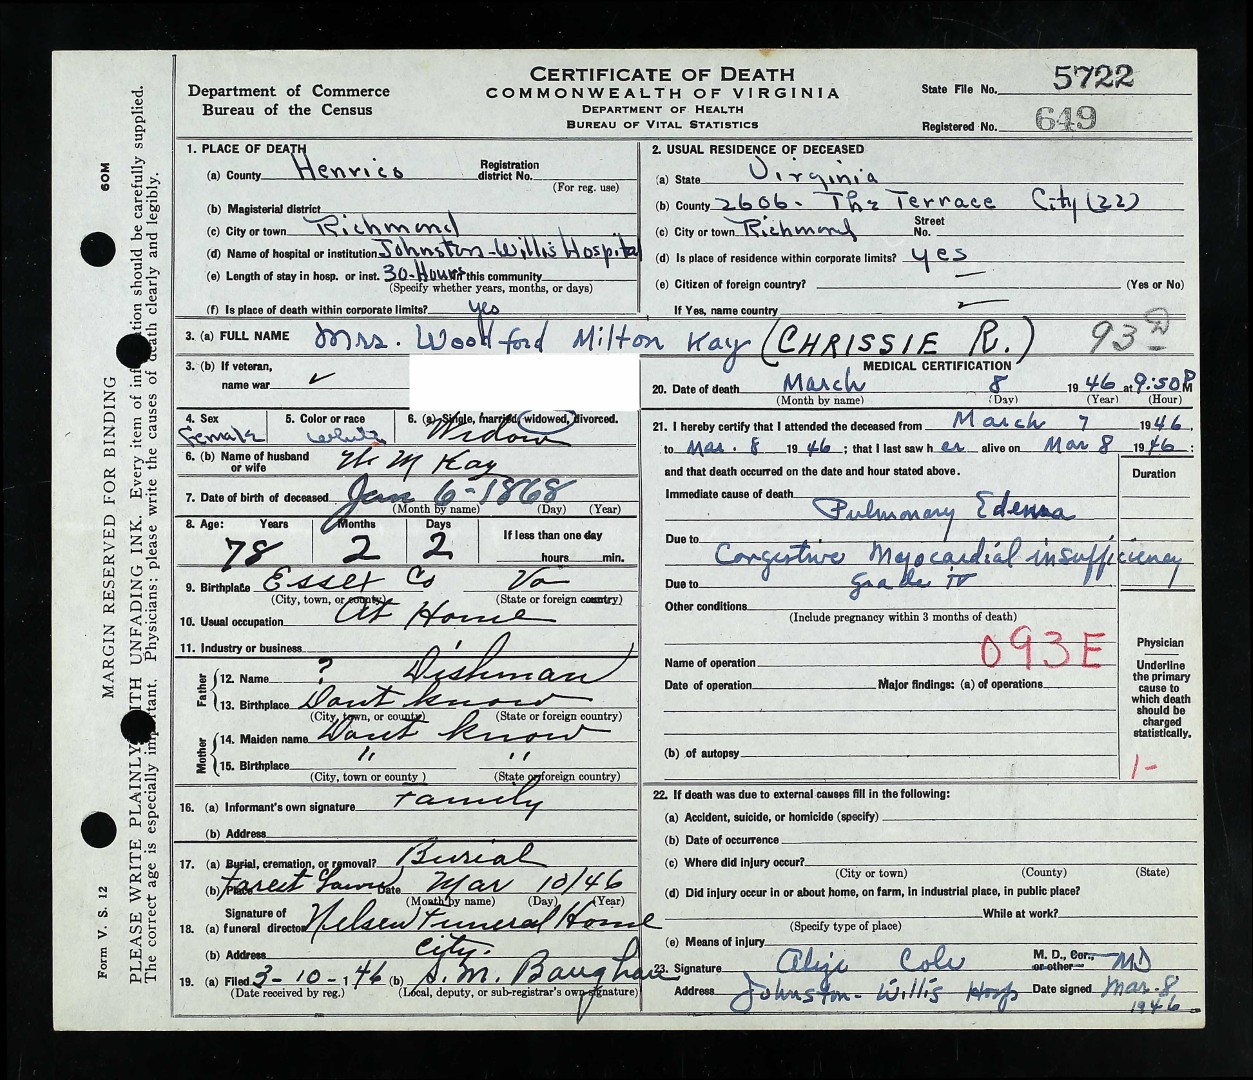 CERTIFICATE OF DEATH
COMMONWEALTH OF VIRGINIA
DEPARTMENT OF HEALTH
BUREAU OF VITAL STATISTICS
Department of Commerce
Bureau of the Census
State File No. 5722
Registered No. 649
1. PLACE OF DEATH
(a) County Henrico Registration district No.
(For reg. use)
(b) Magisterial district
(c) City or town Richmond
(d) Name of hospital or institution Johnston-Willis Hospital
(e) Length of stay in hosp. or inst. 30-Hours in this community
(Specify whether years, months, or days)
(f) Is place of death within corporate limits? yes
2. USUAL RESIDENCE OF DECEASED
(a) State Virginia
(b) County 2606- The Terrace City (22)
(c) City or town Richmond Street No.
(d) Is place of residence within corporate limits? yes
(e) Citizen of foreign country? (Yes or No)
If Yes, name country
3. (a) FULL NAME Mrs. Woodford Milton Kay (CHRISSIE R.) 93 D
3. (b) If veteran, name war ✓
4. Sex Female
5. Color or race White
6. (a) Single, married, widowed, divorced. Widow
6. (b) Name of husband or wife W M Kay
7. Date of birth of deceased Jan 6-1868
(Month by name) (Day) (Year)
8. Age: Years Months Days If less than one day
78 2 2 hours min.
9. Birthplace Essex Co Va
(City, town, or county) (State or foreign country)
10. Usual occupation At Home
11. Industry or business
Father
12. Name ? Dishman
13. Birthplace Dont know
(City, town, or county) (State or foreign country)
Mother
14. Maiden name Dont know
15. Birthplace " "
(City, town or county ) (State or foreign country)
16. (a) Informant's own signature Family
(b) Address
17. (a) Burial, cremation, or removal? Burial
(b) Place Forest Lawn Date Mar 10/46
(Month by name) (Day) (Year)
18. (a) Signature of funeral director Nelsen Funeral Home
(b) Address City.
19. (a) Filed 3-10-1946 (b) S. M. Baughan
(Date received by reg.) (Local, deputy, or sub-registrar's own signature)
MEDICAL CERTIFICATION
20. Date of death March 8 1946 at 9:50 P M
(Month by name) (Day) (Year) (Hour)
21. I hereby certify that I attended the deceased from March 7 1946,
to Mar. 8 1946; that I last saw h er alive on Mar 8 1946;
and that death occurred on the date and hour stated above.
Duration
Immediate cause of death
Pulmonary Edema
Due to
Congestive Myocardial insufficiency
Due to Grade IV
Other conditions
(Include pregnancy within 3 months of death)
093E
Name of operation
Date of operation Major findings: (a) of operations
(b) of autopsy
Physician
Underline the primary cause to which death should be charged statistically.
1-
22. If death was due to external causes fill in the following:
(a) Accident, suicide, or homicide (specify)
(b) Date of occurrence
(c) Where did injury occur?
(City or town) (County) (State)
(d) Did injury occur in or about home, on farm, in industrial place, in public place?
While at work?
(Specify type of place)
(e) Means of injury
23. Signature Cole M. D., Cor., or other MD
Address Johnston-Willis Hosp Date signed Mar. 8
1946
60M
MARGIN RESERVED FOR BINDING
Form V. S. 12
PLEASE WRITE PLAINLY WITH UNFADING INK. Every item of information should be carefully supplied.
The correct age is especially important. Physicians; please write the causes of death clearly and legibly.